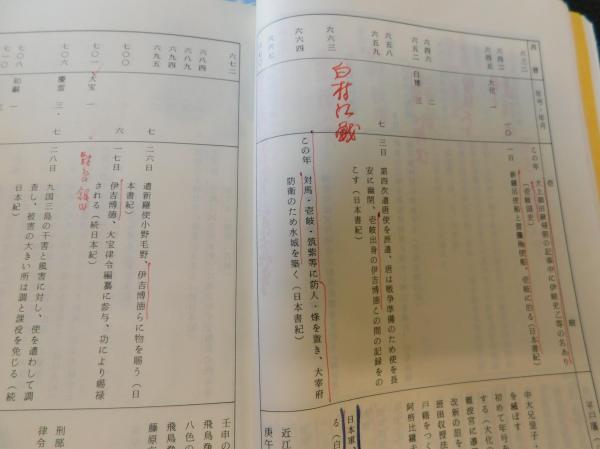 西暦
年号・年月
壱岐
六三二
六四五
大化 一
六四六
二
六五二
白雉 三
六五八
六五九
七 三日
第四次遣唐使を派遣、唐は戦争準備のため使を長
安に幽閉、壱岐出身の伊吉博徳この間の記録をの
こす(日本書紀)
六六三
白村江戦
六六四
この年
対馬・壱岐・筑紫等に防人・烽を置き、大宰府
防衛のため水城を築く(日本書紀)
一〇 一日
この年
新羅送使船と
壱岐に泊る(日本書紀)
(壱岐国史)
中大兄皇子・
を滅ぼす
初めて年号を
する(大化)
難波宮に遷
改新の詔を
班田収授法
戸籍をつく
阿倍比羅夫
日本軍、
る(白
近江
庚午
六七二
六八四
六八九
六九四
六九五
七 二六日
遣新羅使小野毛野、伊吉博徳らに物を賜う(日
本書紀)
七〇〇
六 一七日
伊吉博徳、大宝律令編纂に参与、功により賜禄
される(続日本紀)
七〇一
大宝 一
七〇六
慶雲 三
七 二八日
九国三島の干害と風害に対し、使を遣わして調
査し、被害の大きい所は調と課役を免じる(続
日本紀)
七〇八
和銅 一
七一〇
三
壬申の
飛鳥
八色の
飛鳥
藤原
刑部
律令